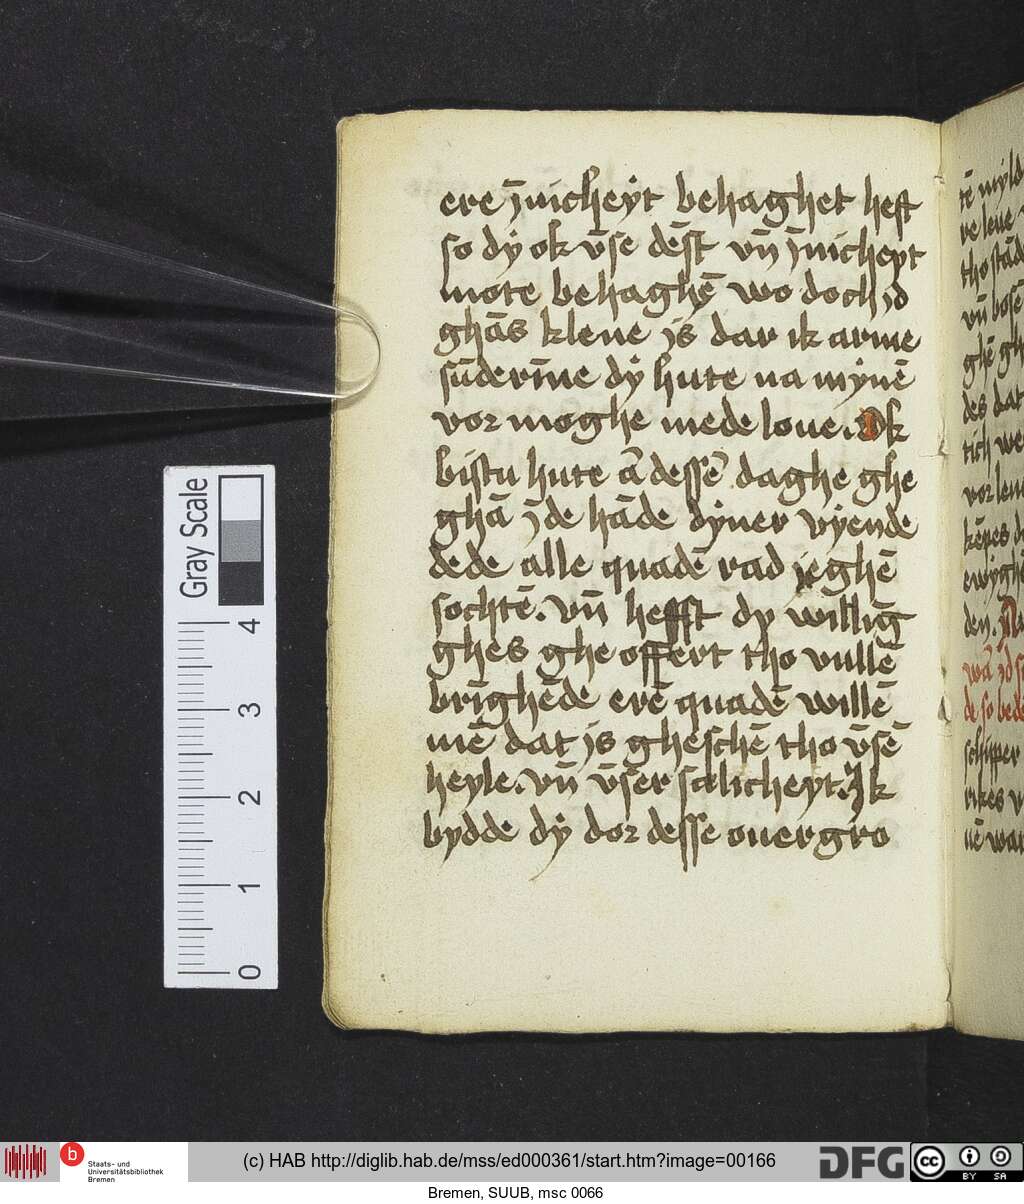 ere j̄nicheẏt behaghet heft
so dẏ ok v̄se dēst vn̄ j̄nicheyt
mote behaghē wo doch jd
ghās klene js dar ik arme
sūderīne dẏ hute na mẏnē
vor moghe mede loue. Ok
bistu hute ā dessē daghe ghe
ghā j̄de hāde dẏner vẏende
dede alle quadē rad jeghē
sochtē. vn̄ hefft dy willīg
ghes ghe offert tho vullē
brīghēde erē quadē willē
mē dat js gheschē tho v̄sē
heyle. vn̄ v̄ser salicheyt. Ik
bydde dẏ dor desse ouergro
tē myld
ve leue
tho stād
vn̄ bosē
ghē gh
des dat
tich we
vor leue
kēres de
ewyghē
den.
wā jd s
de so bede
schipper
rikes v
nē war
Gray Scale
4
3
2
1
0
b
Staats- und
Universitätsbibliothek
Bremen
(c) HAB http://diglib.hab.de/mss/ed000361/start.htm?image=00166
DFG
cc
BY SA
Bremen, SUUB, msc 0066